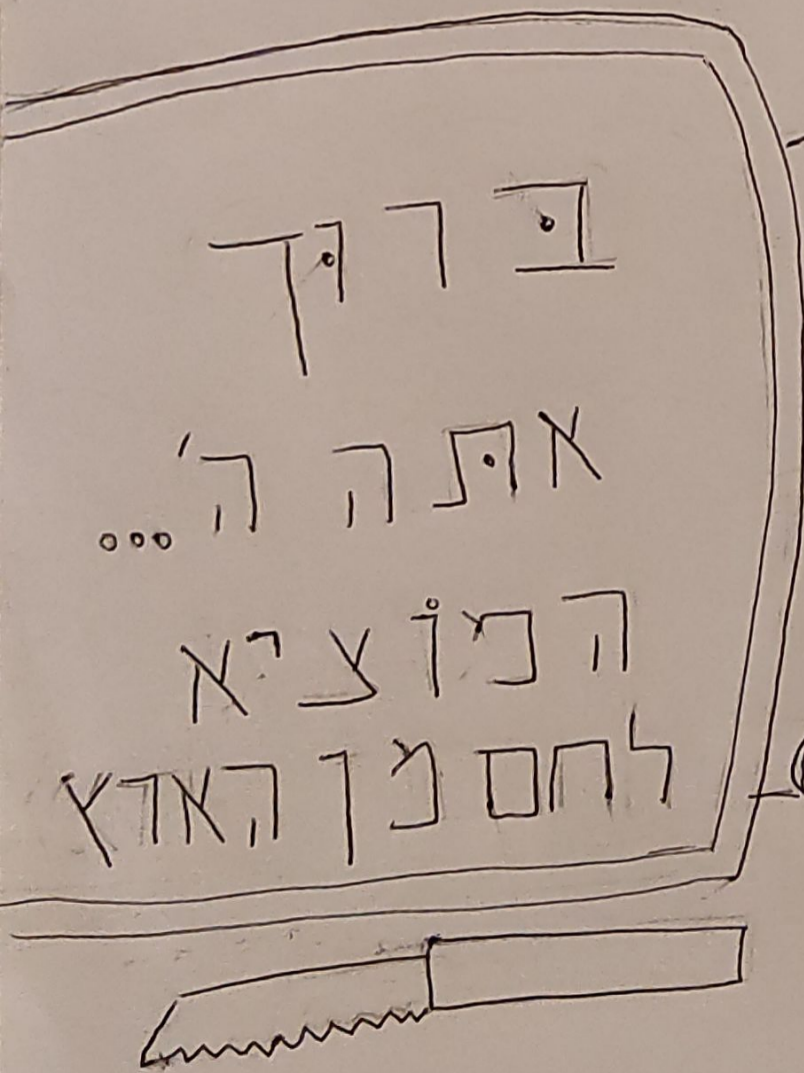 בּרוּך
אתּה ה'...
המוֹציא
לחם מן הארץ